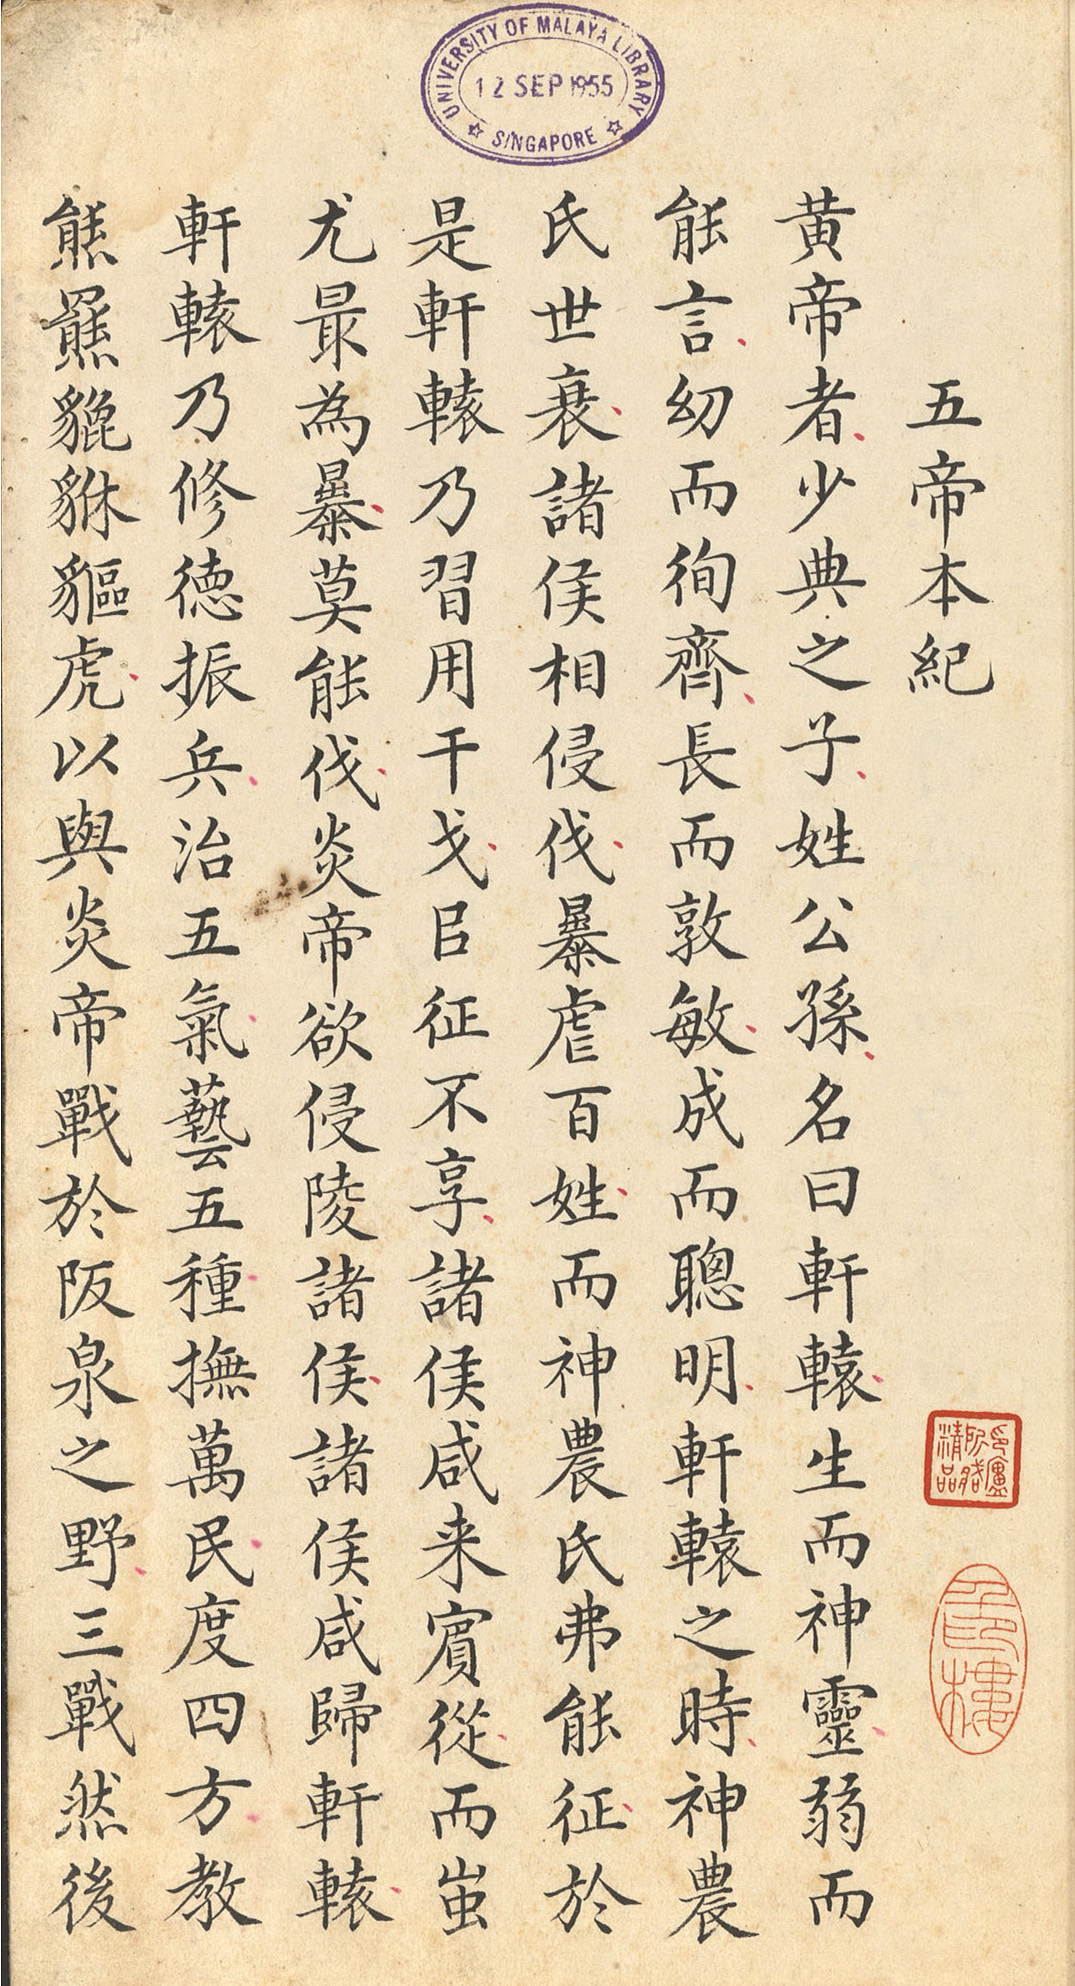 UNIVERSITY OF MALAYA LIBRARY
12 SEP 1955
SINGAPORE
五帝本紀
黃帝者少典之子姓公孫名曰軒轅生而神靈弱而
能言幼而徇齊長而敦敏成而聰明軒轅之時神農
氏世衰諸侯相侵伐暴虐百姓而神農氏弗能征於
是軒轅乃習用干戈㠯征不享諸侯咸来賓從而蚩
尤最為暴莫能伐炎帝欲侵陵諸侯諸侯咸歸軒轅
軒轅乃修德振兵治五氣藝五種撫萬民度四方教
熊羆貔貅貙虎以與炎帝戰於阪泉之野三戰然後